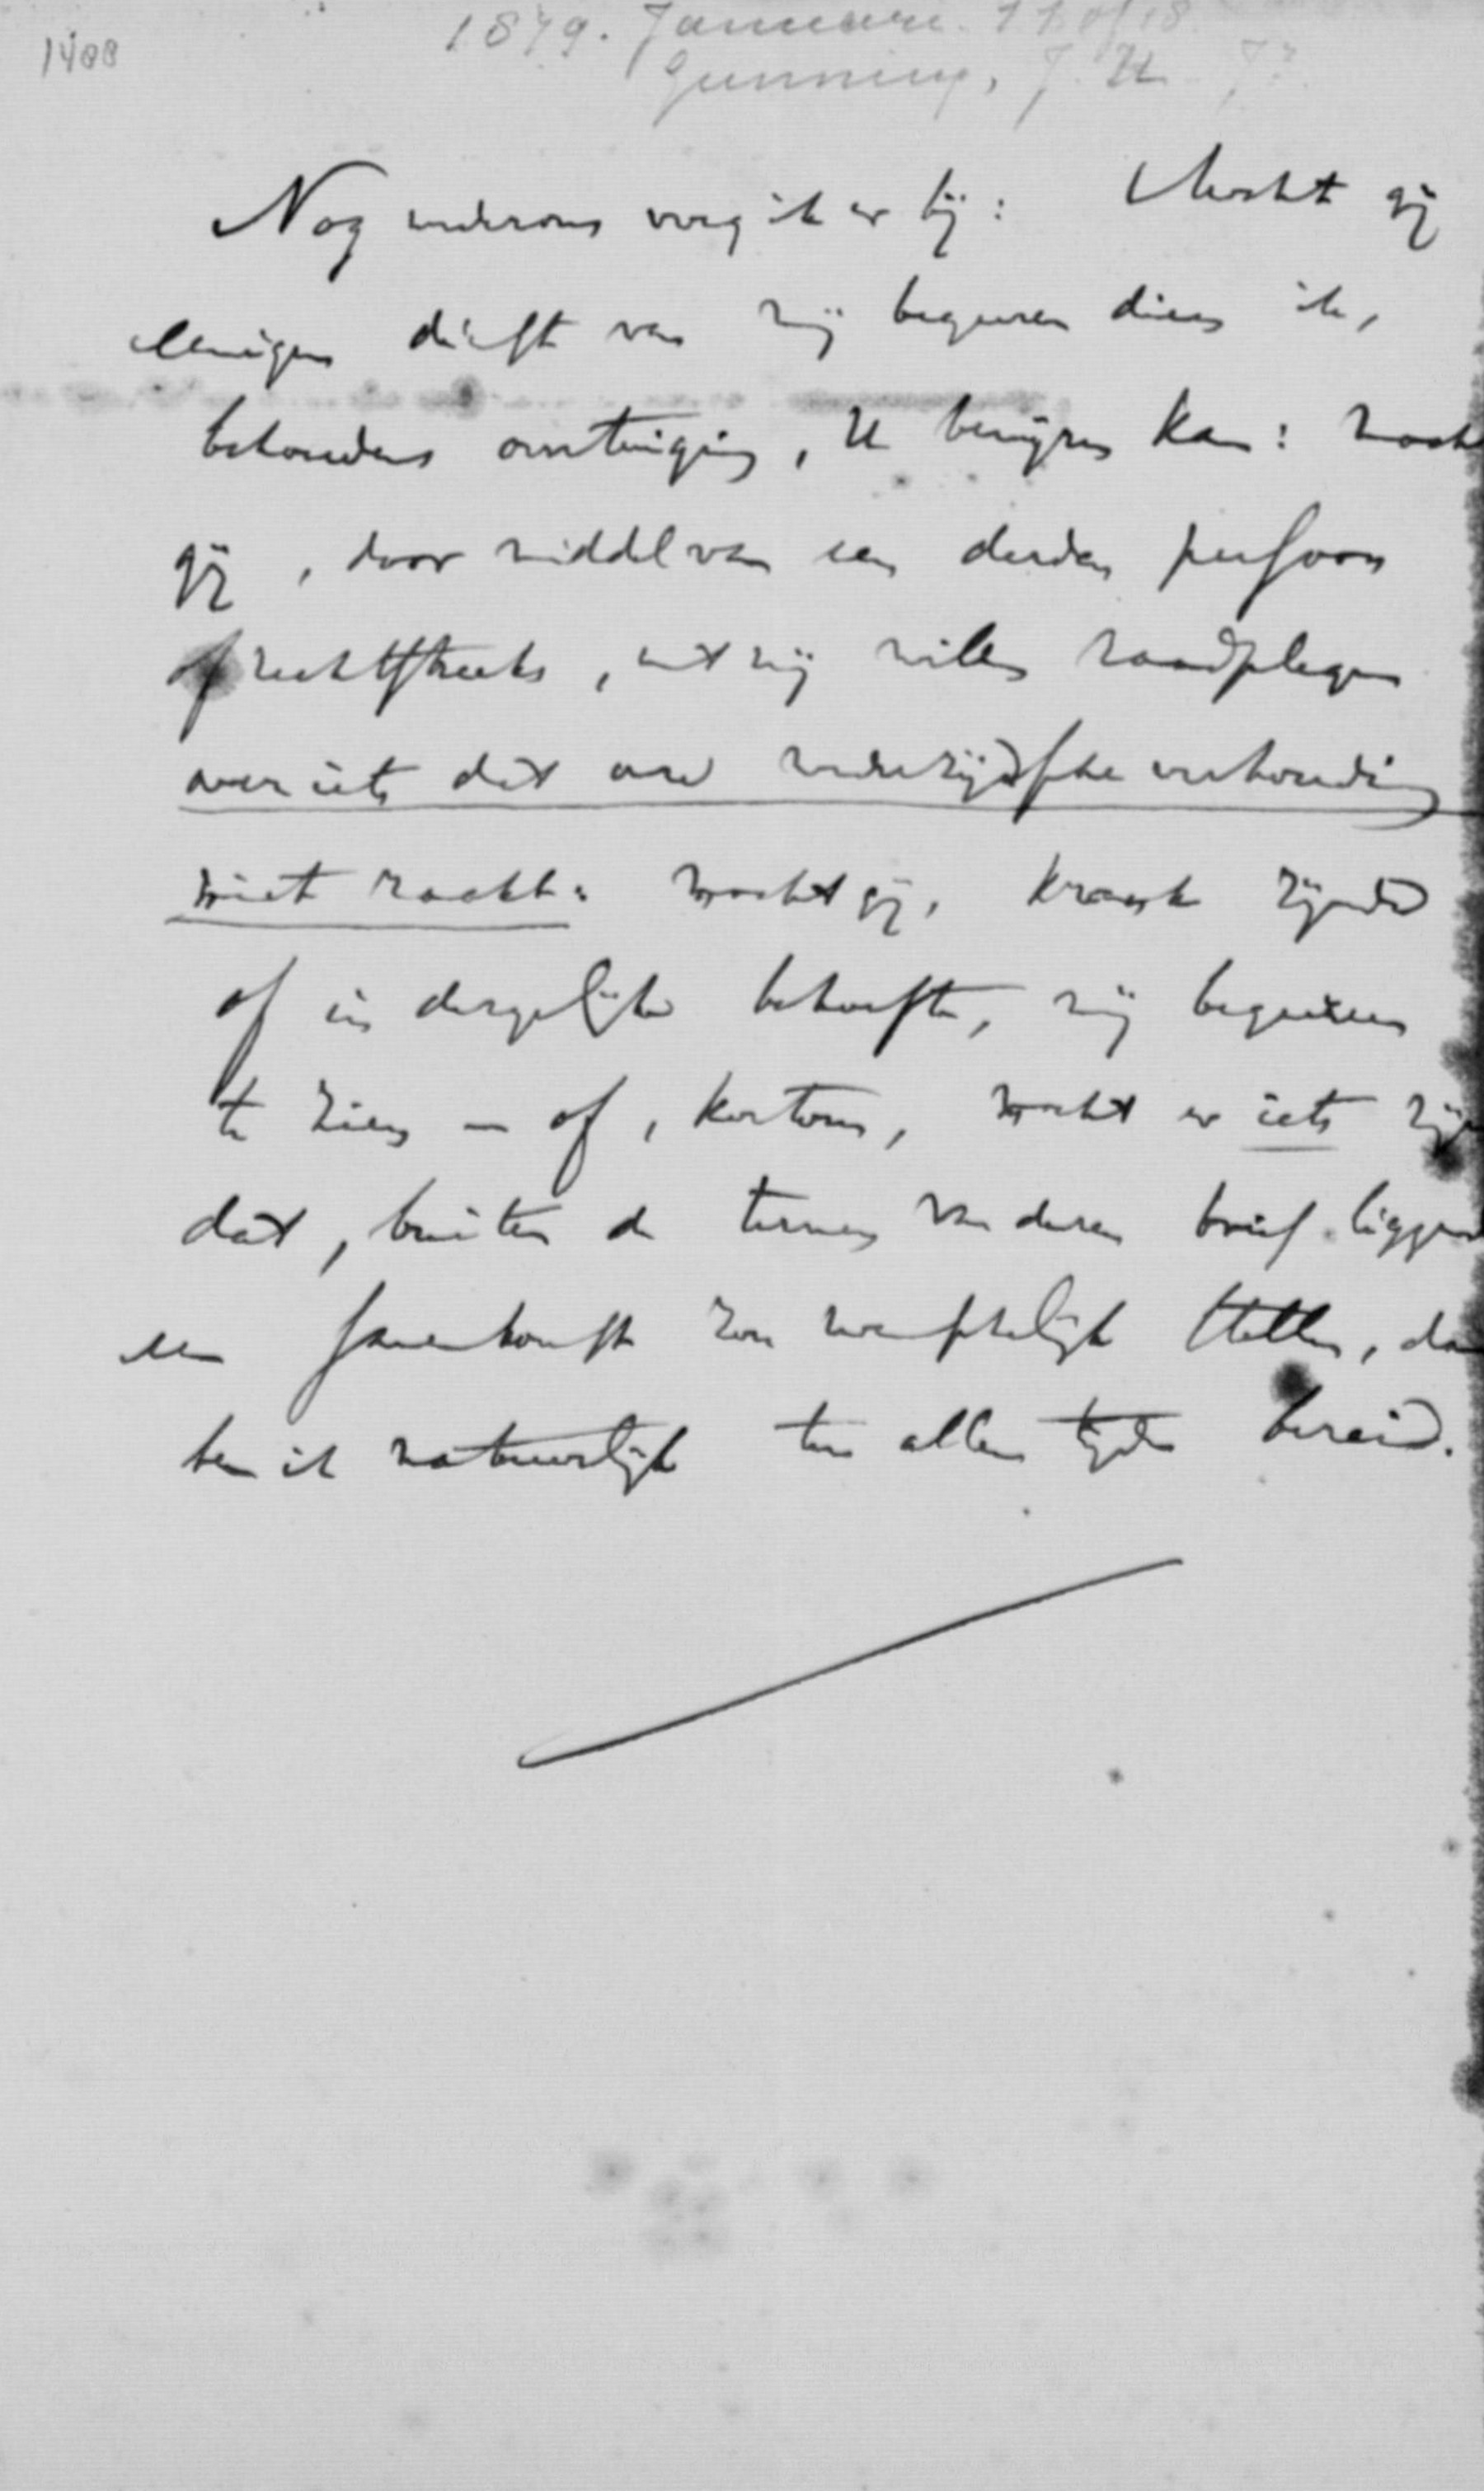 1488
1879. Januari. 17 of 18
Gunning, J. H. Jr
Nog wederom voeg ik er bij: Mocht gij
eenigen dienst van mij begeeren dien ik,
behoudens overtuiging, U bewijzen kan: mocht
gij, door middel van een derden persoon
of rechtstreeks, met mij willen raadplegen
over iets dat onze wederzijdsche verhouding
niet raakt: mocht gij, krank zijnde
of in dergelijke behoefte, mij begeeren
te zien – of, kortom, mocht er iets zijn
dat, buiten de termen van dezen brief liggend
een samenkomst zou wenschelijk stellen, dan
ben ik natuurlijk ten allen tijde bereid.